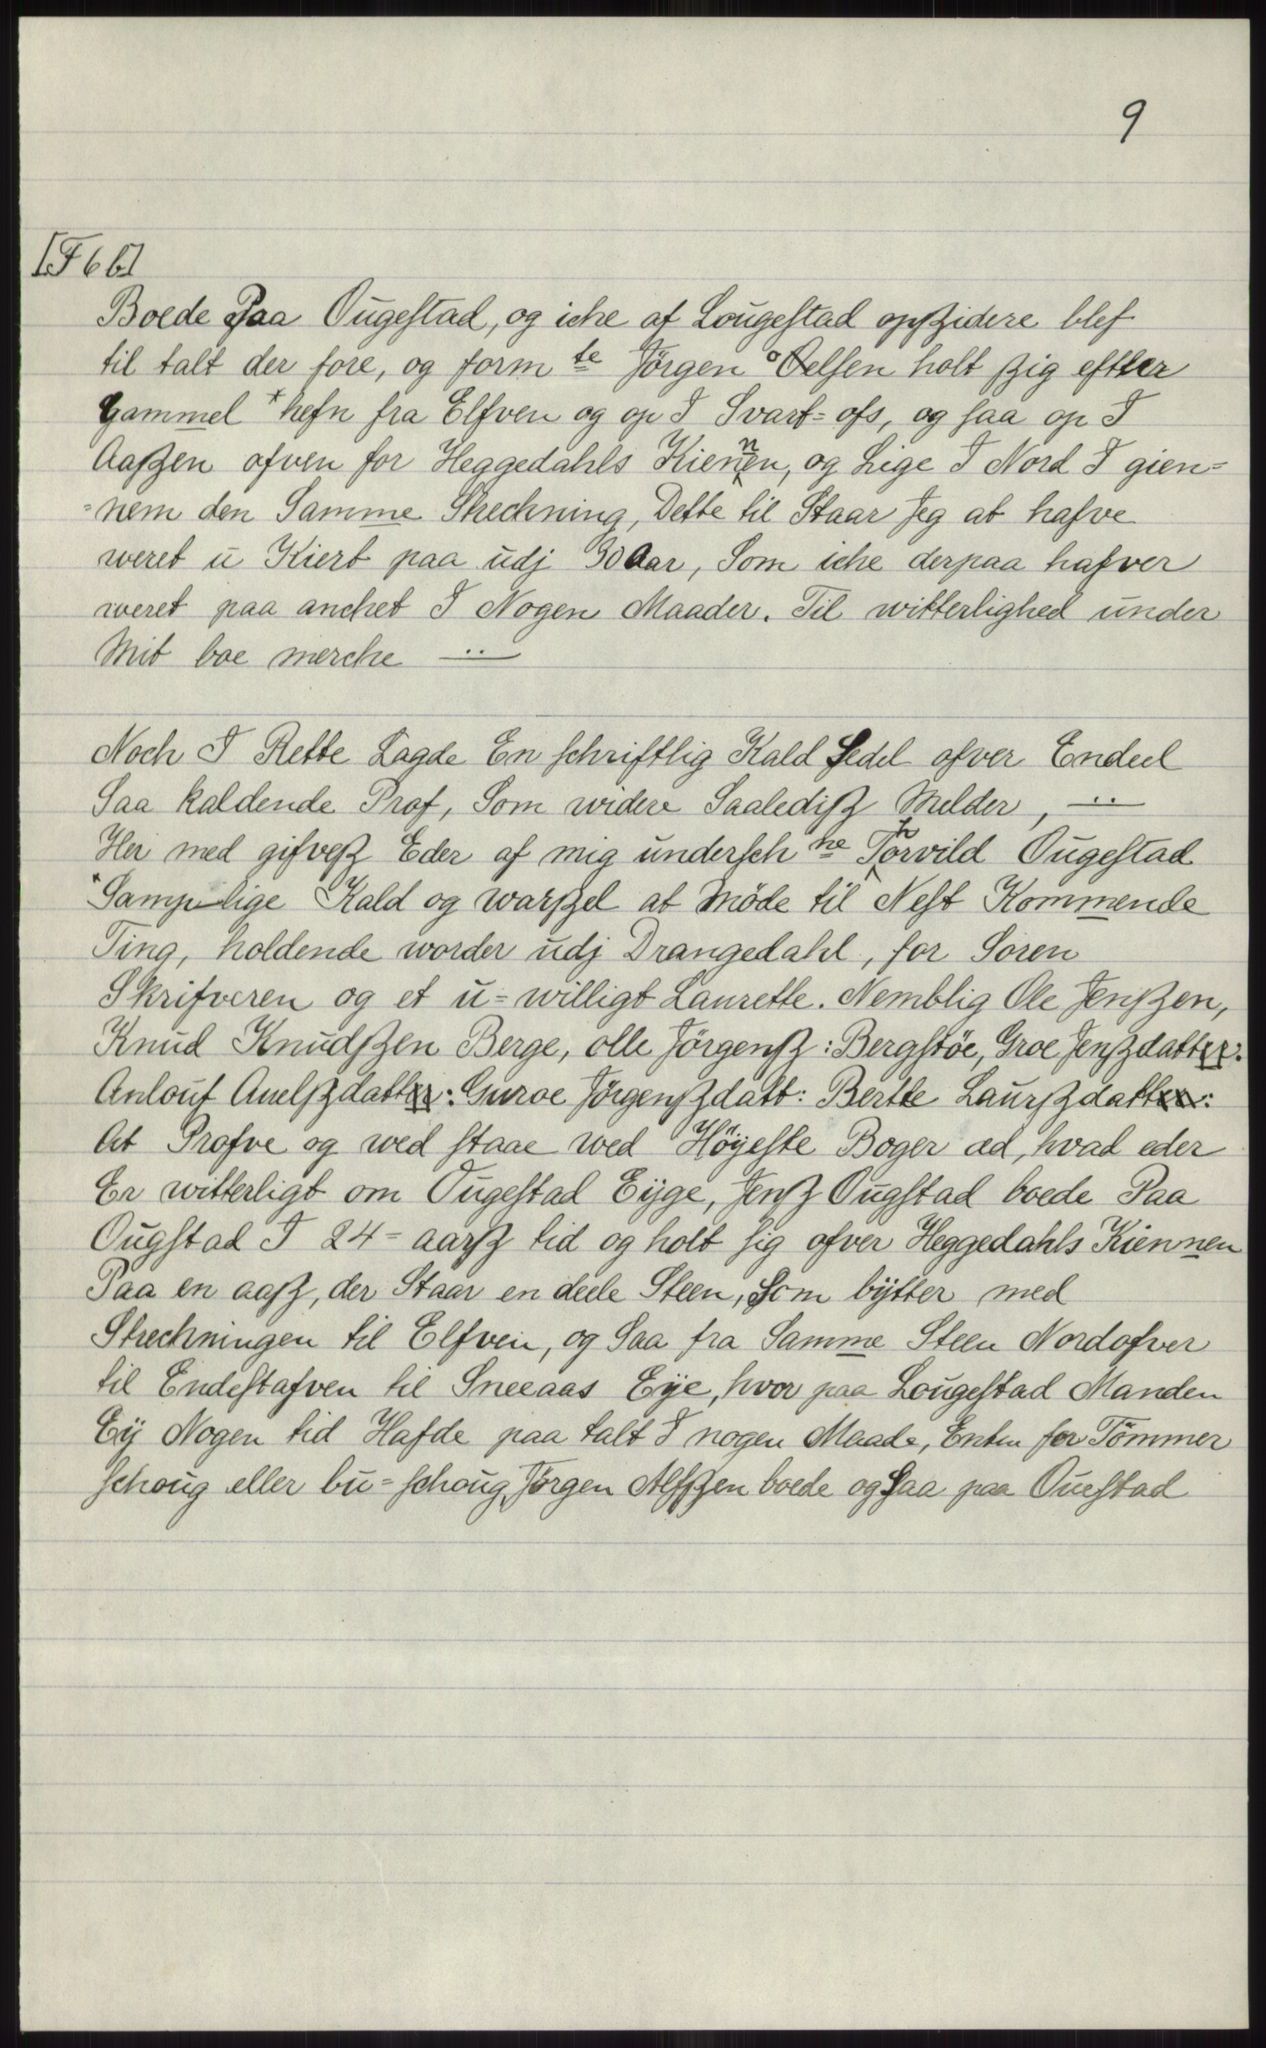 9
[F 6 b]
Boede Paa Ougestad, og iche af Lougestad opßidere blef
til talt der fore, og form te Jörgen Oelsen holt ßig efter
gammel *hefn fra Elfven og op I Svart= ofs, og saa op I
Aaßen ofven for Heggedahls Kiennen, og Lige I Nord I gien=
=nem den Samme Strechning, Dette til Staar Jeg at hafve
weret u Kiert paa udj 30 Aar, Som iche derpaa hafver
weret paa anchet I Nogen Maader. Til witterlighed under
Mit boe merche
Noch I Rette Lagde En schriftlig Kald Sedel ofver Endeel
Saa kaldende Prof, Som widere Saalediß Melder,
Her med gifveß Eder af mig undersch ne Thorvild Ougestad
*Sampslige Kald og warßel at Möde til Nest Kommende
Ting, holdende worder udj Drangedahl, for Soren
Skrifveren og et u= willigt Laurette. Nemblig Ole Jenßen,
Knud Knudßen Berge, olle Jörgenß: Bergstöe, Groe Jenßdatt:
Anlouf Auelßdatt: Guroe Jörgenßdatt: Bertte Laurßdatt:
At Profve og wed staae wed Höÿeste Boger æd, hvad eder
Er witterligt om Ougestad Eÿge, Jenß Ougstad boede Paa
Ougstad I 24= aarß tid og holt sig ofver Heggedahls Kiennen
Paa en aaß, der Staar en deele Steen, Som bÿtter med
Strechningen til Elfven, og Saa fra Samme Steen Nordofver
til Endestafven til Sneeaas Eÿe, hvor paa Lougestad Manden
Eÿ Nogen tid Hafde paa talt I nogen Maade, Enten for Tömmer
schoug eller bu= schoug, Jörgen Alfßen boede og Saa paa Ouestad